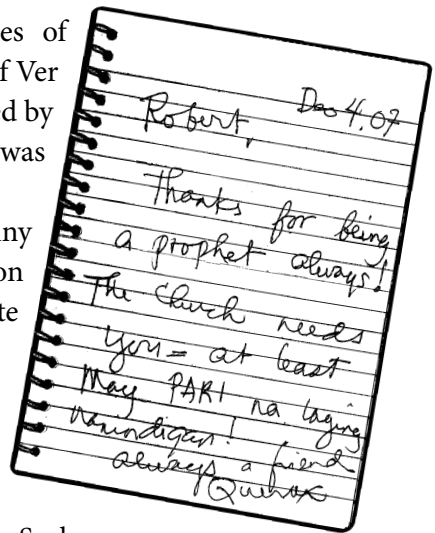 es of
f Ver
ed by
was
ny
on
te
Dec 4, 07
Robert,
Thanks for being
a prophet always!
The Church needs
you = at least
May PARI na laging
nanindigan!
always a friend